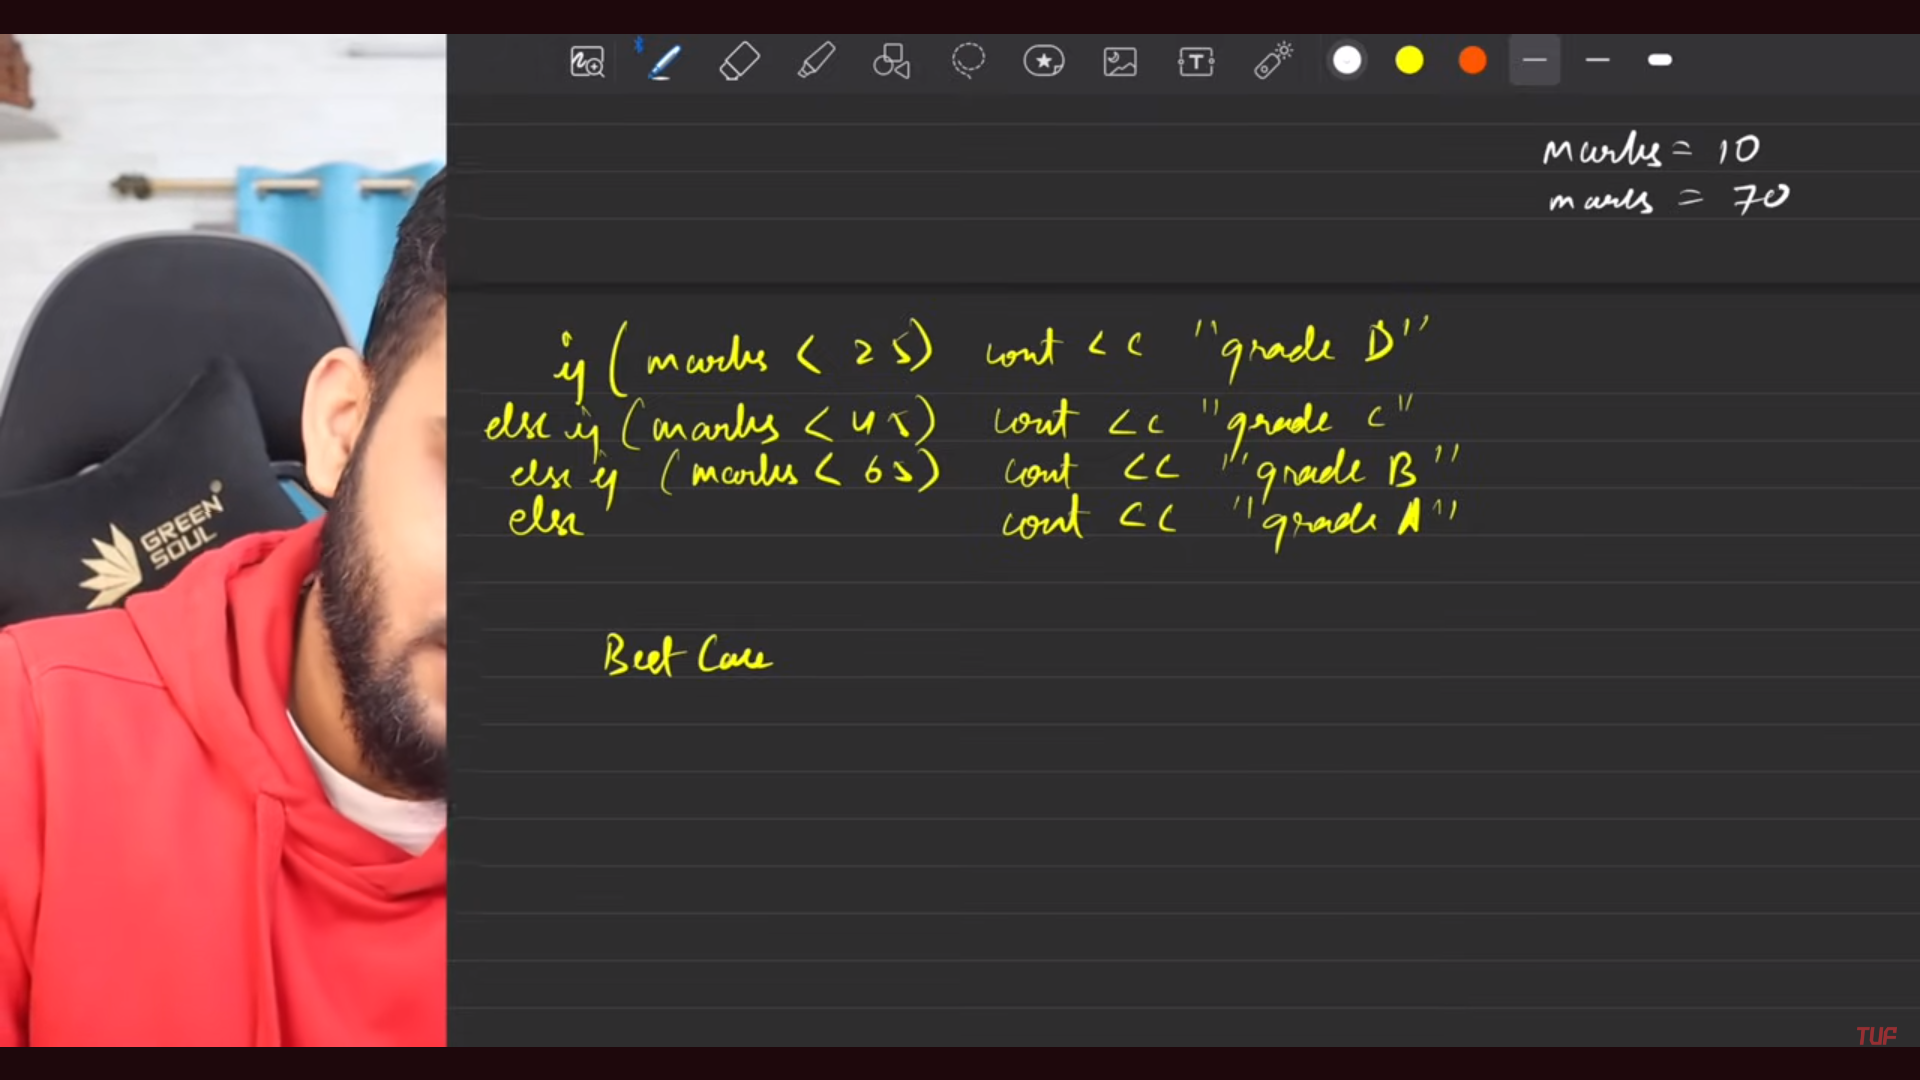 marks = 10
marks = 70
if ( marks < 25) cout << "grade D"
else if (marks < 45) cout << "grade C"
else if (marks < 65) cout << "grade B"
else cout << "grade A"
Best Case
GREEN
SOUL
TUF